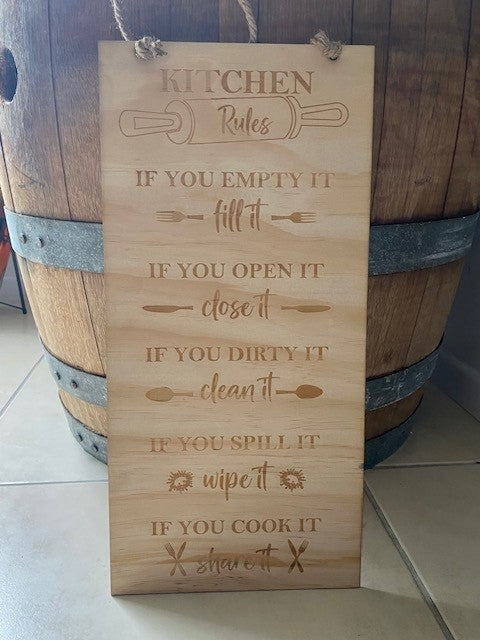 KITCHEN
Rules
IF YOU EMPTY IT
fill it
IF YOU OPEN IT
close it
IF YOU DIRTY IT
clean it
IF YOU SPILL IT
wipe it
IF YOU COOK IT
share it